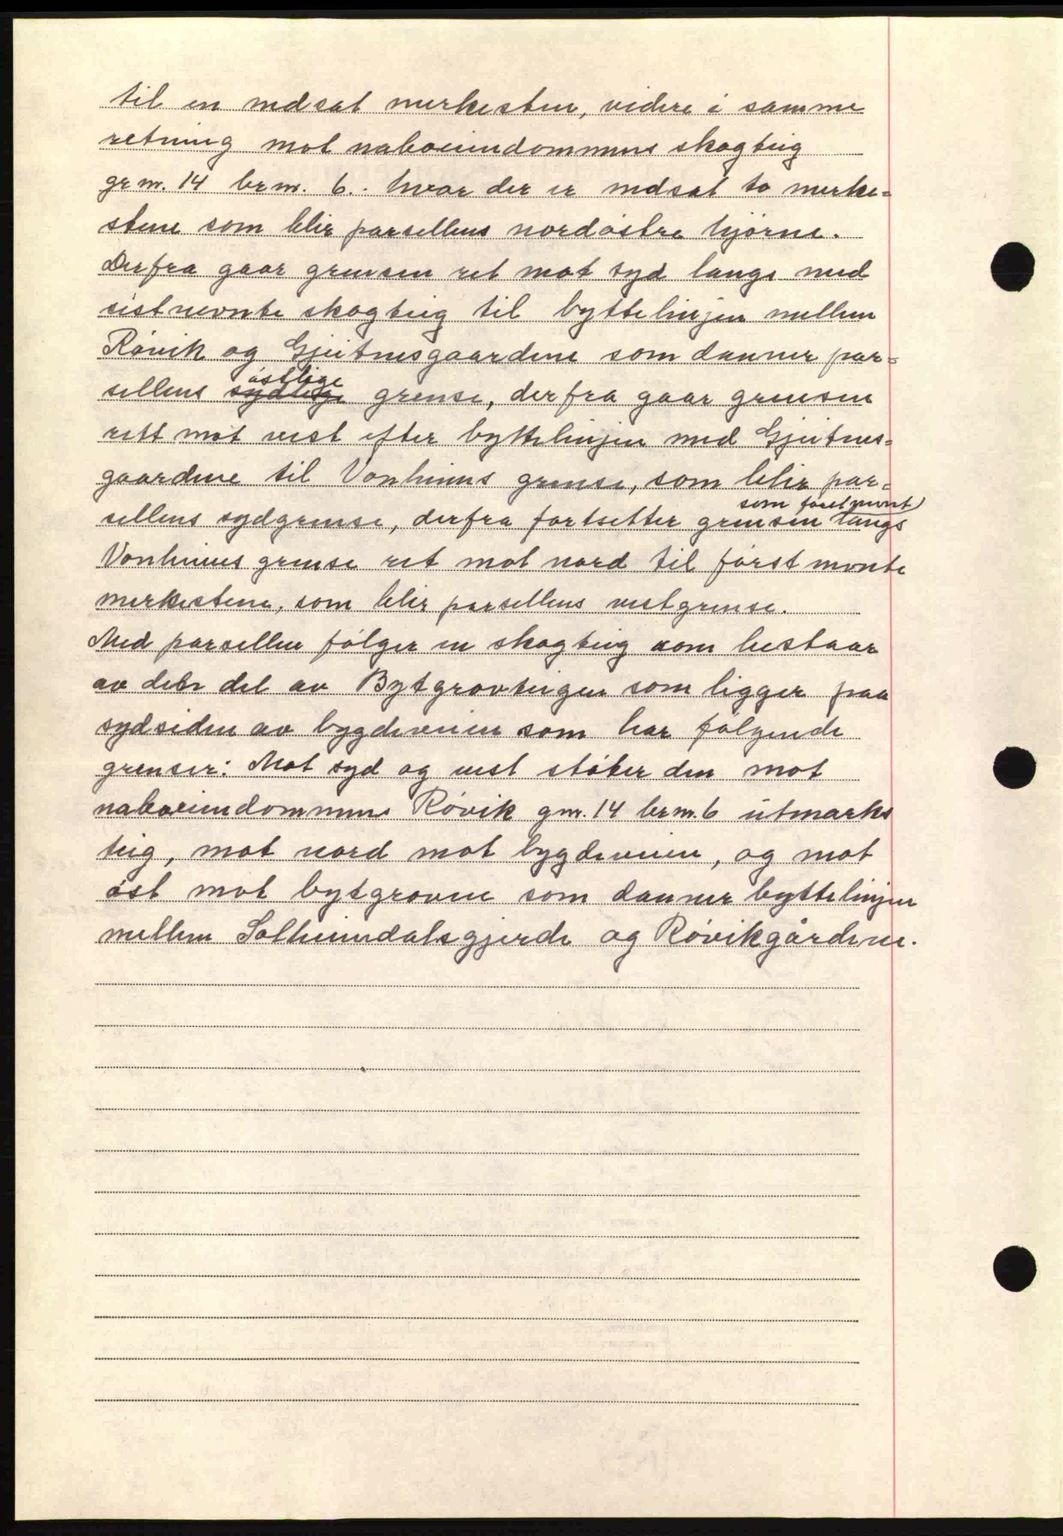 til en nedsat merkesten, videre i samme
retning mot naboeiendommens skogteig
gr.nr. 14 br.nr. 6.. hvor der er nedsat to merke=
stene som blir parsellens nordøstre hjørne.
Derfra gaar grensen ret mot syd langs med
sistnevnte skogteig til byttelinjen mellem
Røvik og Gjeitnesgaardene som danner par=
østlige
sellens sydlige grense, derfra gaar grensen
rett mot vest efter byttelinjen med Gjeitnes=
gaardene til Vonheims grense, som blir par=
som føretnevnt
sellens sydgrense, derfra fortsetter grensen langs
Vonheims grense ret mot nord til først nevnte
merkestene, som blir parsellens vestgrense.
Med parsellen følger en skogteig som bestaar
av den del av Bytgrovteigen som ligger paa
sydsiden av bygdeveien som har følgende
grenser: Mot syd og vest støter den mot
naboeiendommens Røvik gnr. 14 br.nr. 6 utmarks
teig, mot nord mot bygdeveien, og mot
øst mot bytgroven som danner byttelinjen
mellem Solheimdalsgjerde og Røvikgårdene.